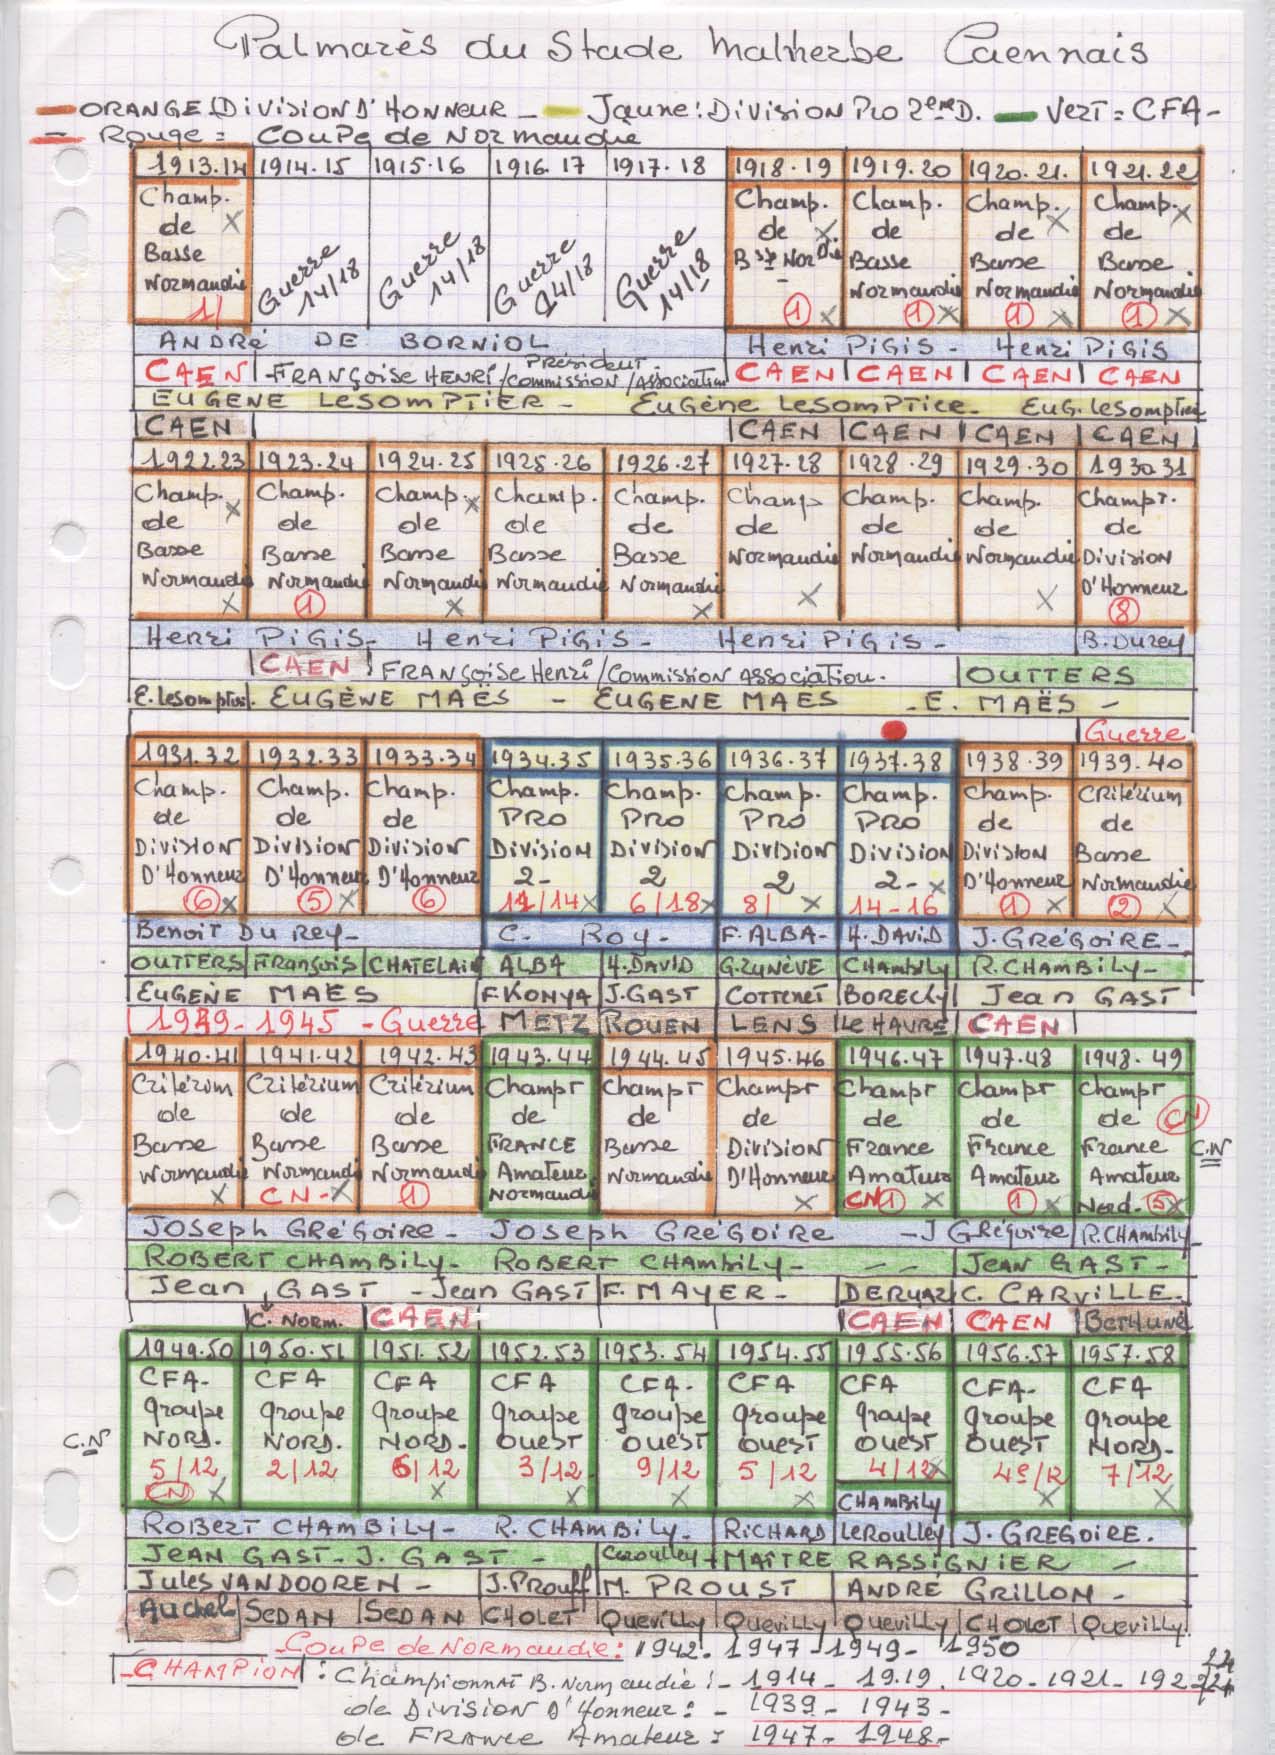 Palmarès du Stade Malherbe Caennais
ORANGE: Division D'Honneur - Jaune: Division Pro 2eme D. Vert = CFA -
Rouge = Coupe de Normandie
1913.14 1914.15 1915.16 1916.17 1917.18 1918.19 1919.20 1920.21. 1921.22
Champ. Champ. Champ. Champ. Champ.
de X de X. de de X de X
Basse Guerre Guerre Guerre Guerre Bsse Nordie Basse Basse Basse
Normandie 14/18 14/18 14/18 14/18 - Normandie Normandie Normandie
1/ 1 X 1 X 1 X 1 X
ANDRÉ DE BORNIOL Henri PiGiS - Henri PiGiS
CAEN FRANÇOISE HENRI / Président Commission / Association CAEN CAEN CAEN CAEN
EUGENE LESOMPTIER - EuGène LESOMPTICE. EuG. LeSomptier
CAEN CAEN CAEN CAEN CAEN
1922.23 1923.24 1924.25 1925.26 1926.27 1927.28 1928.29 1929.30 1930.31
Champ. X Champ. Champ. X Champ. Champ. Champ Champ. Champ. Champt.
de de de de de de de de de
Basse Basse Basse Basse Basse Normandie Normandie Normandie Division
Normandie Normandie Normandie Normandie Normandie D'Honneur
X 1 X X X X 8
Henri PiGiS - Henri PiGiS - Henri PiGiS - B. Durey
CAEN FRANÇOISE Henri / Commission ASSOCIATION. OUTTERS
E. Lesomptier. EUGÈNE MAËS - EUGENE MAES - E. MAËS -
Guerre
1931.32 1932.33 1933.34 1934.35 1935.36 1936.37 1937.38 1938.39 1939.40
Champ. Champ. Champ. Champ. Champ. Champ. Champ. Champ. CRitérium
de de de PRO PRO PRO PRO de de
Division Division Division Division Division Division Division Division Basse
D'Honneur D'Honneur D'Honneur 2- 2 2 2- X D'Honneur Normandie
6 X 5 X 6 14/14 X 6/18 X 8/ X 14-16 1 X 2 X
Benoit Du Rey - C. Roy - F. ALBA - H. DAVID J. GRéGoiRE -
OUTTERS François CHATELAIN ALBA H. DAVID G. ZUNÈVE CHAMbily R. CHAMBiLy -
EUGENE MAËS F. KONYA J. GAST COTTENET BORECKY Jean GAST
1939 - 1945 - Guerre METZ ROUEN LENS Le HAVRE CAEN
1940.41 1941.42 1942.43 1943.44 1944.45 1945.46 1946.47 1947.48 1948.49
Critérium Critérium Critérium Champt Champt Champt Champt Champt Champt
de de de de de de de de de CN
Basse Basse Basse FRANCE Basse Division France France France C.N
Normandie Normandie Normandie Amateur Normandie D'Honneur Amateur Amateur Amateur
X CN-X 1 Normandie X CN 1 X 1 X Nord - 5 X
Joseph GRéGoiRE - Joseph GRéGoiRE - J GRéGoire R. CHAMbily -
ROBERT CHAMBily - ROBERT CHAMbily - - - JEAN GAST -
Jean GAST - Jean GAST F. MAYER - DERUAZ C. CARViLLE.
C. NORM. CAEN CAEN CAEN BETHUNE
1949.50 1950.51 1951.52 1952.53 1953.54 1954.55 1955.56 1956.57 1957.58
CFA- CFA CFA CFA CFA- CFA CFA CFA- CFA
groupe groupe groupe groupe groupe groupe groupe groupe groupe
C.N NORD. NORD. NORD- OUEST OUEST OUEST OUEST OUEST NORD-
5/12 2/12 6/12 3/12 9/12 5/12 4/12 X 4e/12 7/12
CN X X X X X X X
CHAMbily
ROBERT CHAMBily - R. CHAMBily. RiCHARD LeRoulley J. GREGOiRE.
JEAN GAST - J. GAST - Leroulley + MAÎTRE RASSIGNIER -
Jules VANDOOREN - J. Prouff M. PROUST ANDRÉ GRILLON -
Auchel SEDAN SEDAN CHOLET Quevilly Quevilly Quevilly CHOLET Quevilly
Coupe de Normandie: 1942. 1947 - 1949 - 1950
-CHAMPION : Championnat B. Normandie: - 1914 - 19.19. 1920 - 1921 - 1922
de Division D'Honneur: - 1939 - 1943 -
de FRANCE Amateur: 1947 - 1948 -